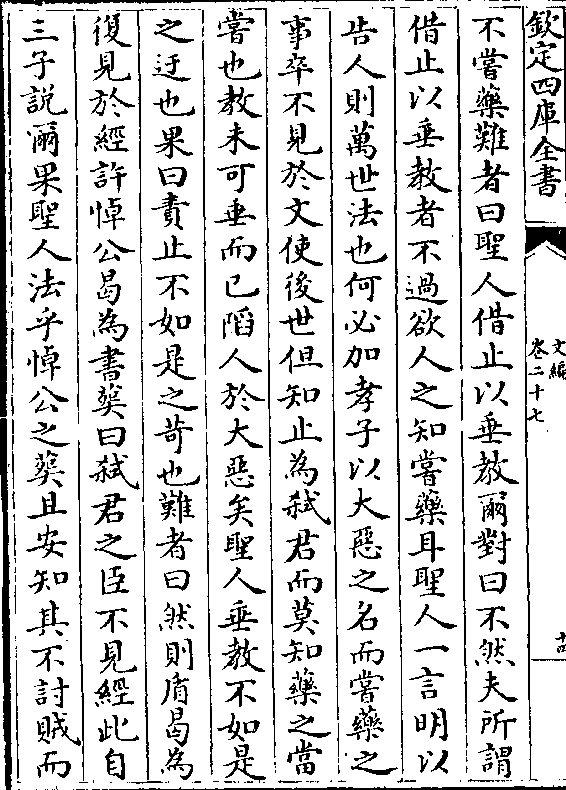 欽定四庫全書
文編
卷二十七
十四
不嘗藥難者曰聖人借止以垂教爾對曰不然夫所謂
借止以垂教者不過欲人之知嘗藥耳聖人一言明以
告人則萬世法也何必加孝子以大惡之名而嘗藥之
事卒不見於文使後世但知止為弑君而莫知藥之當
嘗也教未可垂而已䧟人於大惡矣聖人垂教不如是
之迂也果曰責止不如是之苛也難者曰然則盾曷為
復見於經許悼公曷為書葬曰弑君之臣不見經此自
三子說爾果聖人法乎悼公之葬且安知其不討賊而